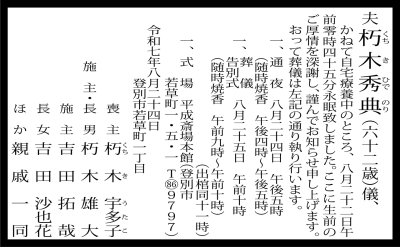 夫 朽木秀典（六十二歳）儀、
くちきひでのり
かねて自宅療養中のところ、八月二十二日午
前零時四十五分永眠致しました。ここに生前の
ご厚情を深謝し、謹んでお知らせ申し上げます。
おって葬儀は左記の通り執り行います。
一、通夜 八月二十四日 午後五時
（随時焼香 午後四時〜午後五時）
一、葬儀告別式 八月二十五日 午前十時
（随時焼香 午前九時〜午前十時）
（出棺同十一時）
一、式場 平成斎場本館（登別市
若草町一・五・一 T㊏９７９７）
令和七年八月二十四日
登別市若草町二丁目
喪主 朽木宇多子
くちきうたこ
施主・長男 朽木雄大
施主 吉田拓哉
長女 吉田沙也花
ほか親戚一同